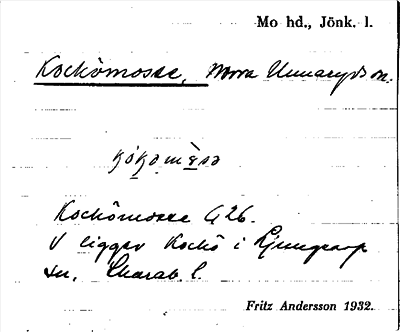 Mo hd., Jönk. l.
Kockömosse, Norra Unnaryds sn.
Kockömosse G 26.
V ligger Kockö i Ljungarp
sn. Skarab. l.
Fritz Andersson 1932.